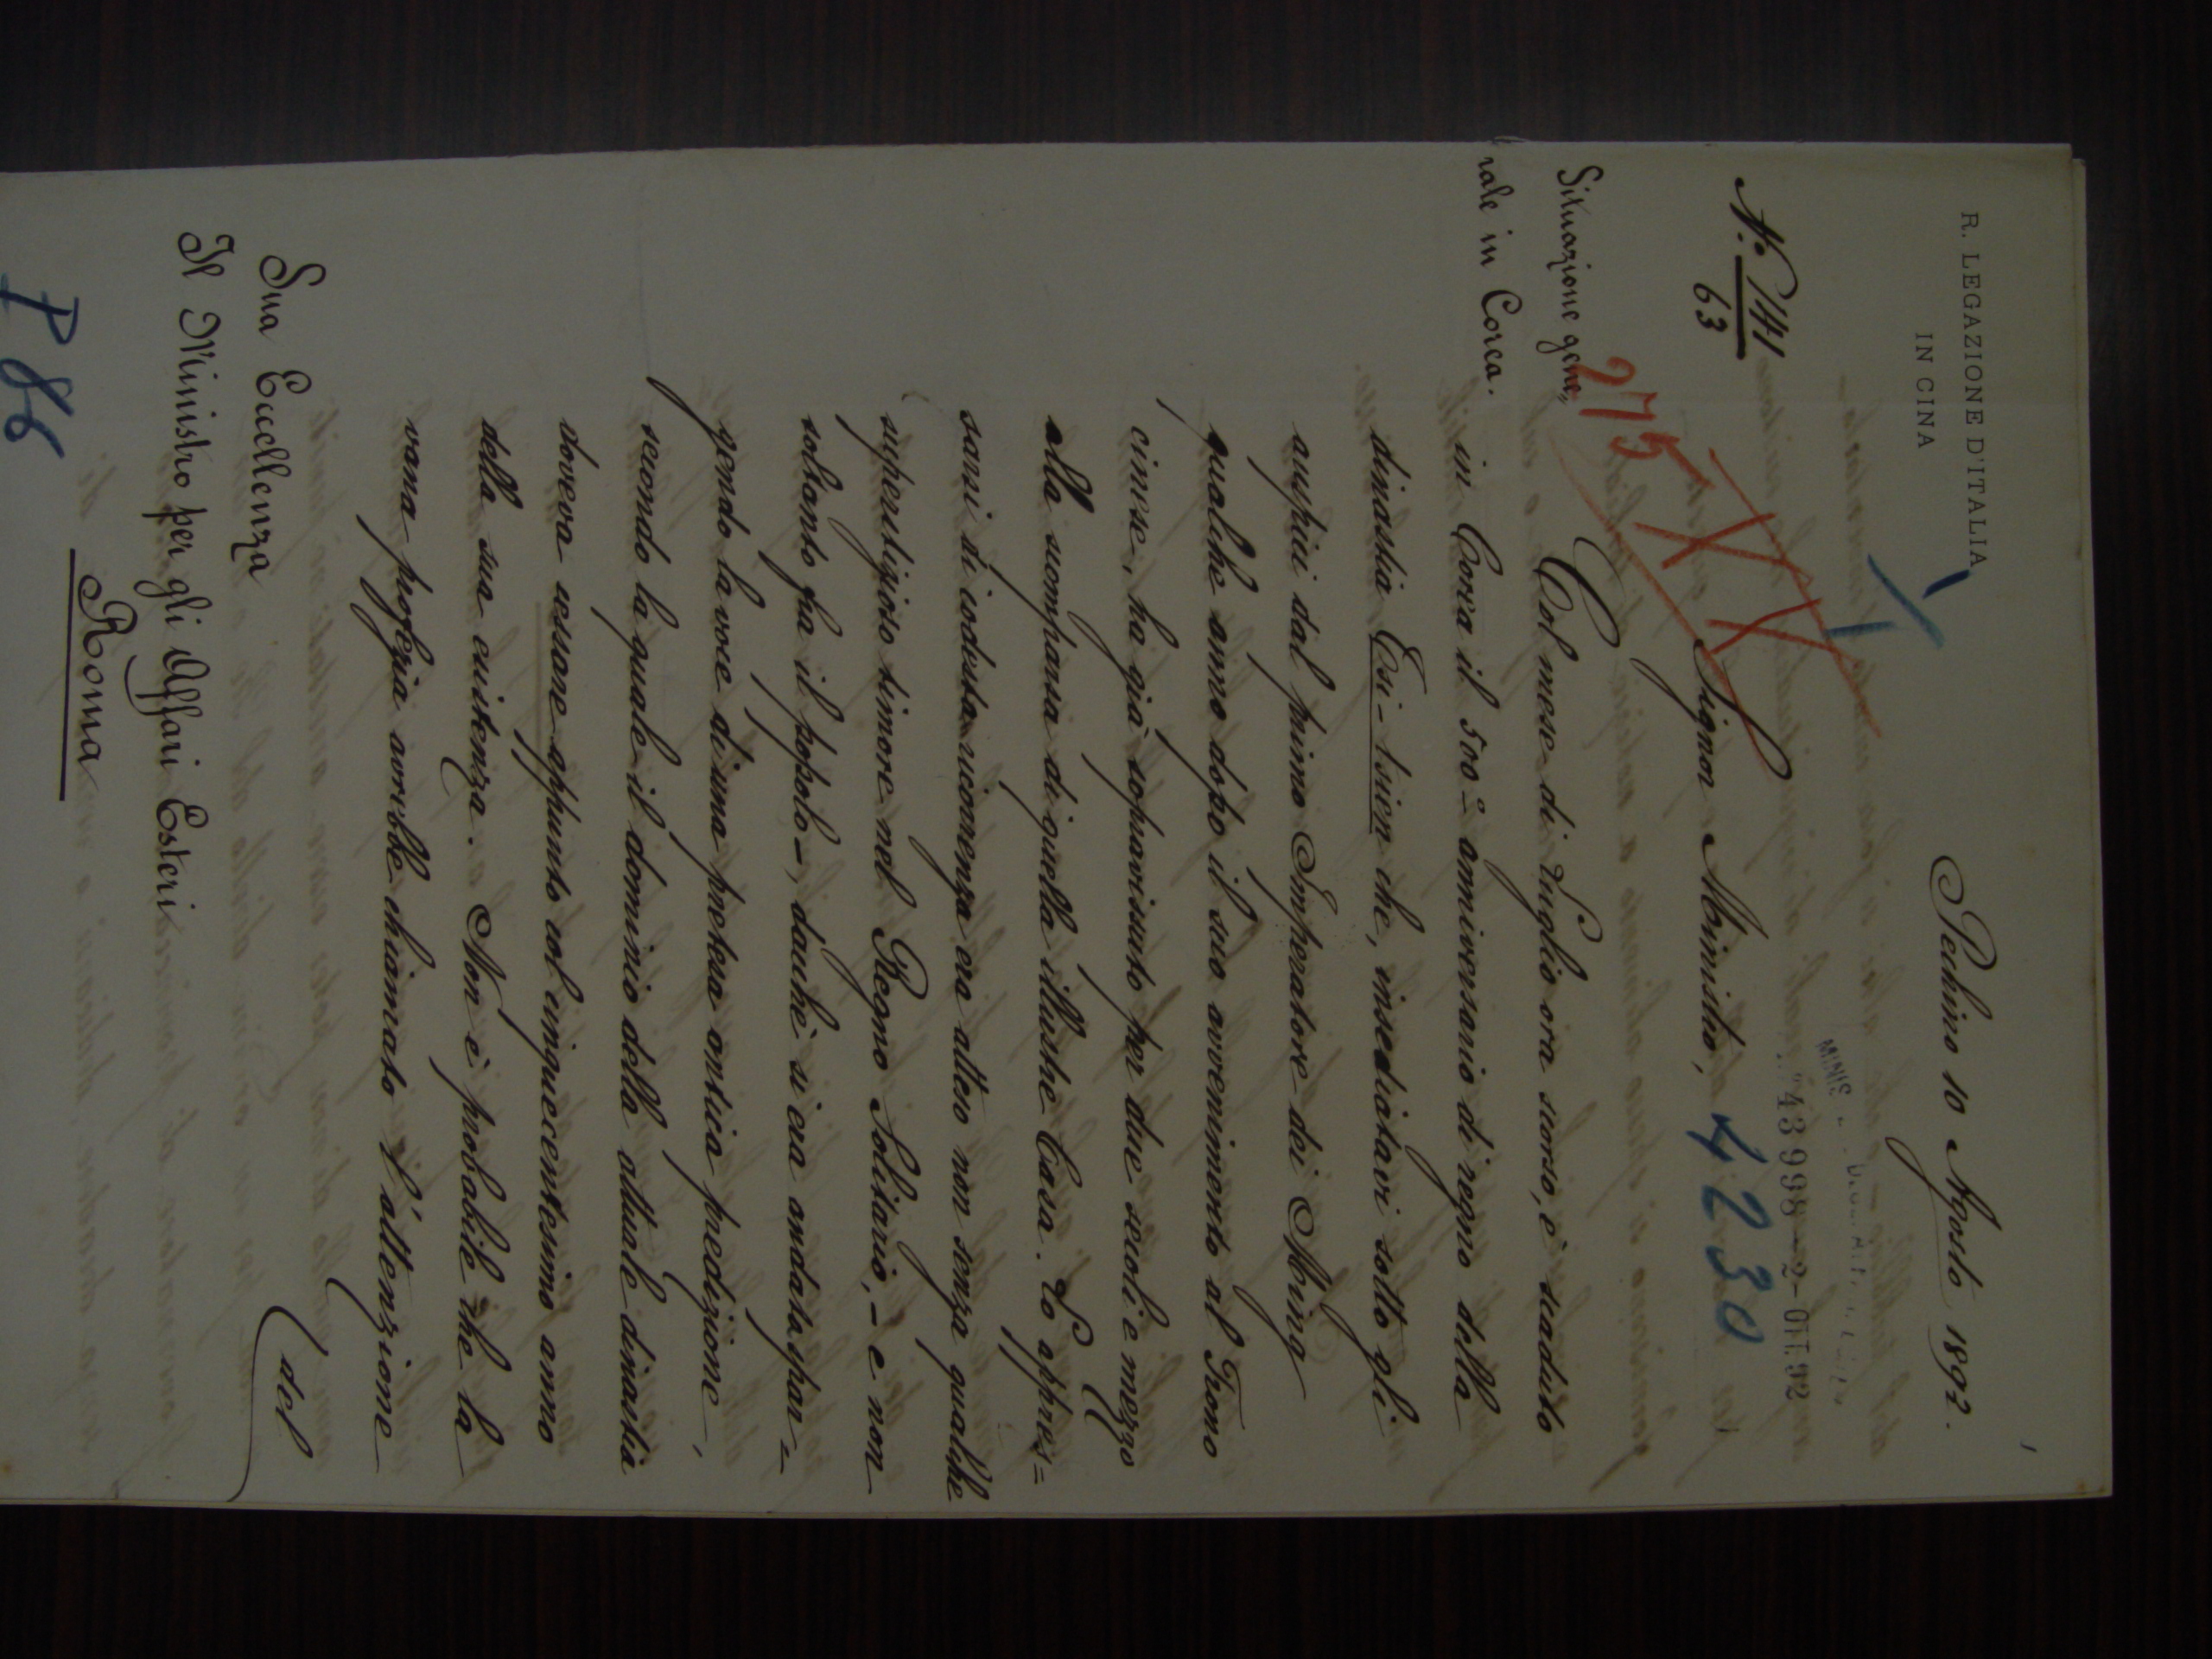 R. LEGAZIONE D'ITALIA
IN CINA
Pechino 10 Agosto 1892.
N.° 141
63
43998 - 2 - OTT. 92
4230
275
Situazione gene„
rale in Corea.
Signor Ministro,
Col mese di Luglio ora scorso, è scaduto
in Corea il 500° anniversario di regno della
dinastia Tsi-tsien che, insediatavi sotto gli
auspici dal primo Imperatore dei Ming
qualche anno dopo il suo avvenimento al Trono
cinese, ha già sopravissuto per due secoli e mezzo
alla scomparsa di quella illustre Casa. Lo appres=
sarsi di codesta ricorrenza era atteso non senza qualche
superstizioso timore nel Regno Solitario, - e non
soltanto fra il popolo -, dacchè si era andata spar=
gendo la voce di una pretesa antica predizione,
secondo la quale il dominio della attuale dinastia
doveva cessare appunto col cinquecentesimo anno
della sua esistenza. Non è probabile che la
vana profezia avrebbe chiamato l'attenzione
(del
Sua Eccellenza
Il Ministro per gli Affari Esteri
Roma
P 86